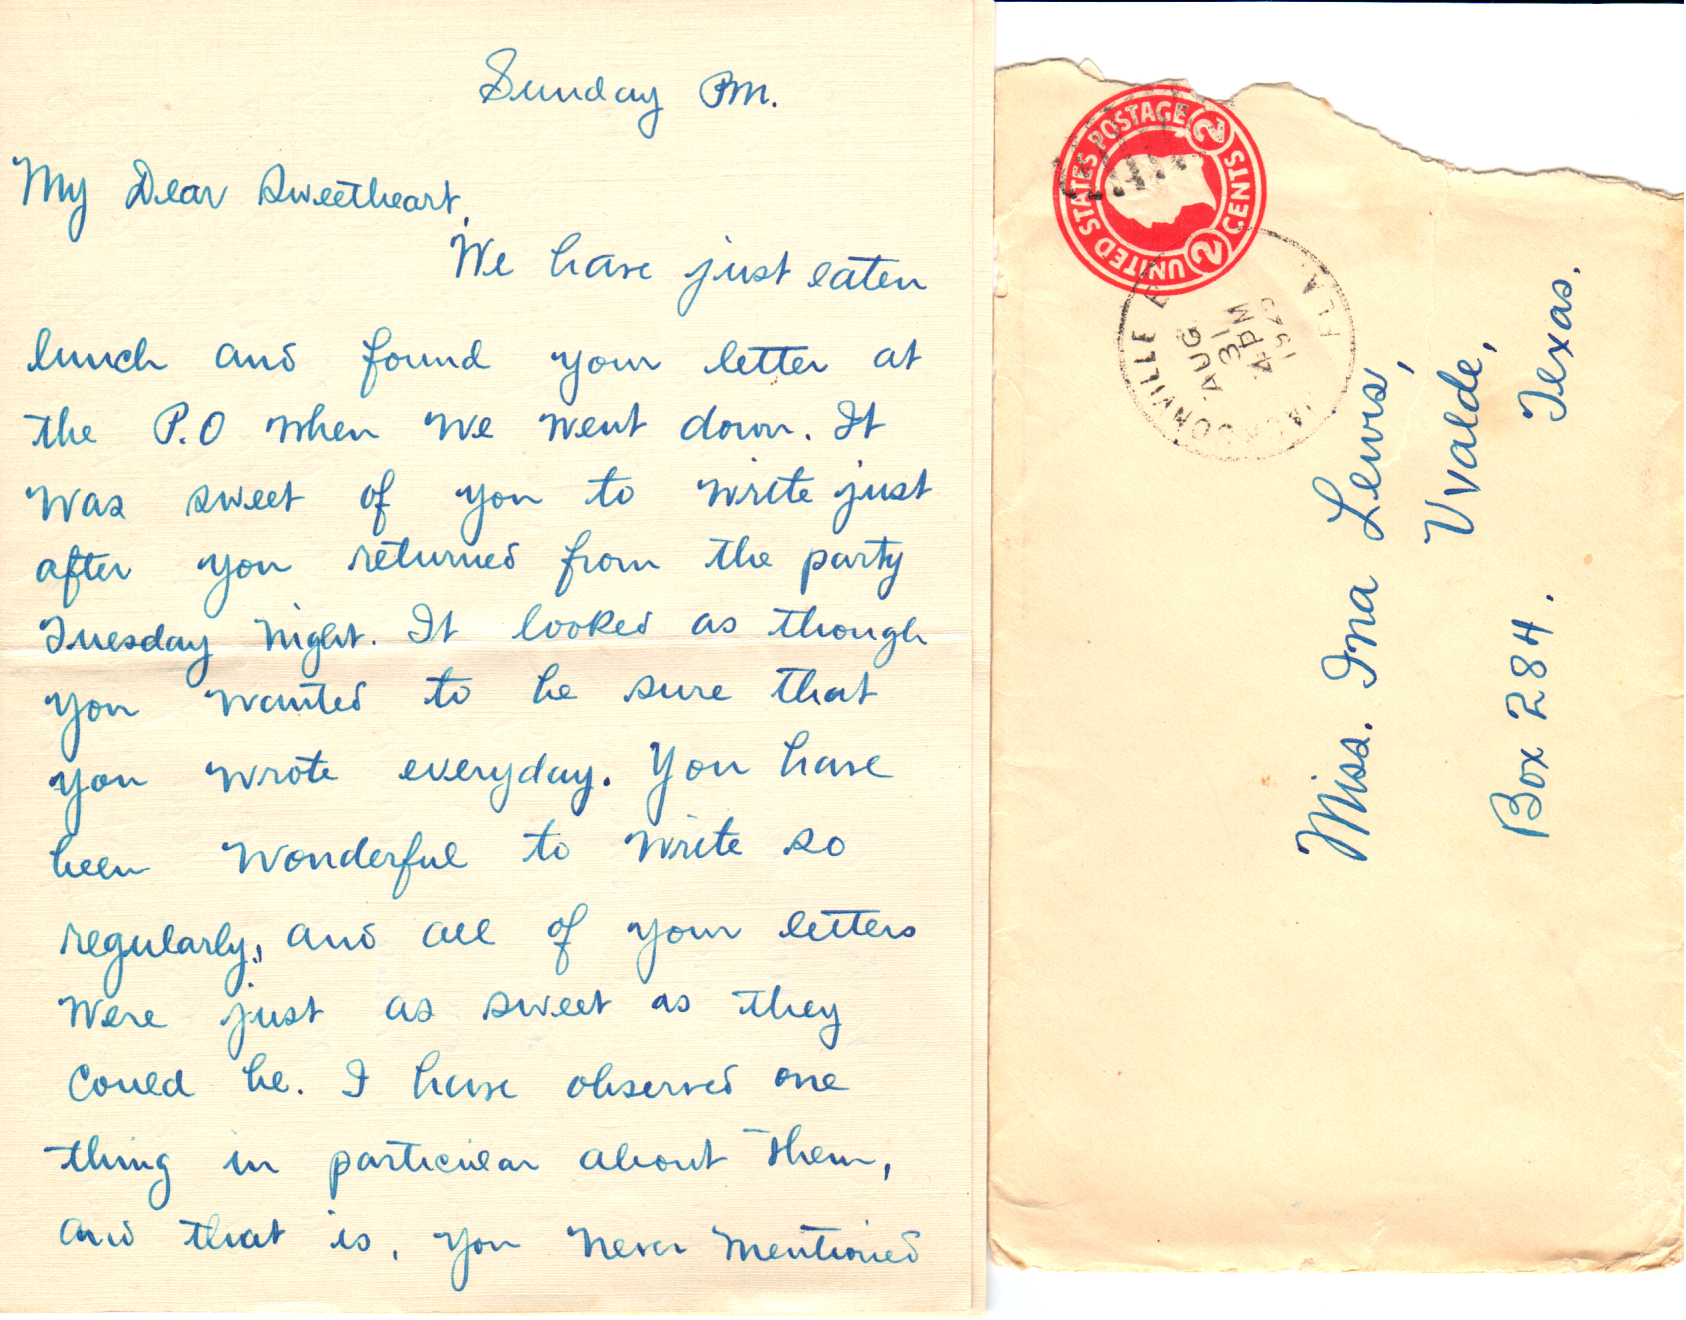 Sunday PM.
My Dear Sweetheart,
We have just eaten
lunch and found your letter at
the P.O when we went down. It
was sweet of you to write just
after you returned from the party
Tuesday night. It looked as though
you wanted to be sure that
you wrote everyday. You have
been wonderful to write so
regularly, and all of your letters
were just as sweet as they
could be. I have observed one
thing in particular about them,
and that is, you never mentioned
UNITED STATES POSTAGE
2 CENTS 2
JACKSONVILLE
AUG
31
4 PM
FLA.
Miss. Ina Lewis,
Uvalde,
Box 284. Texas.